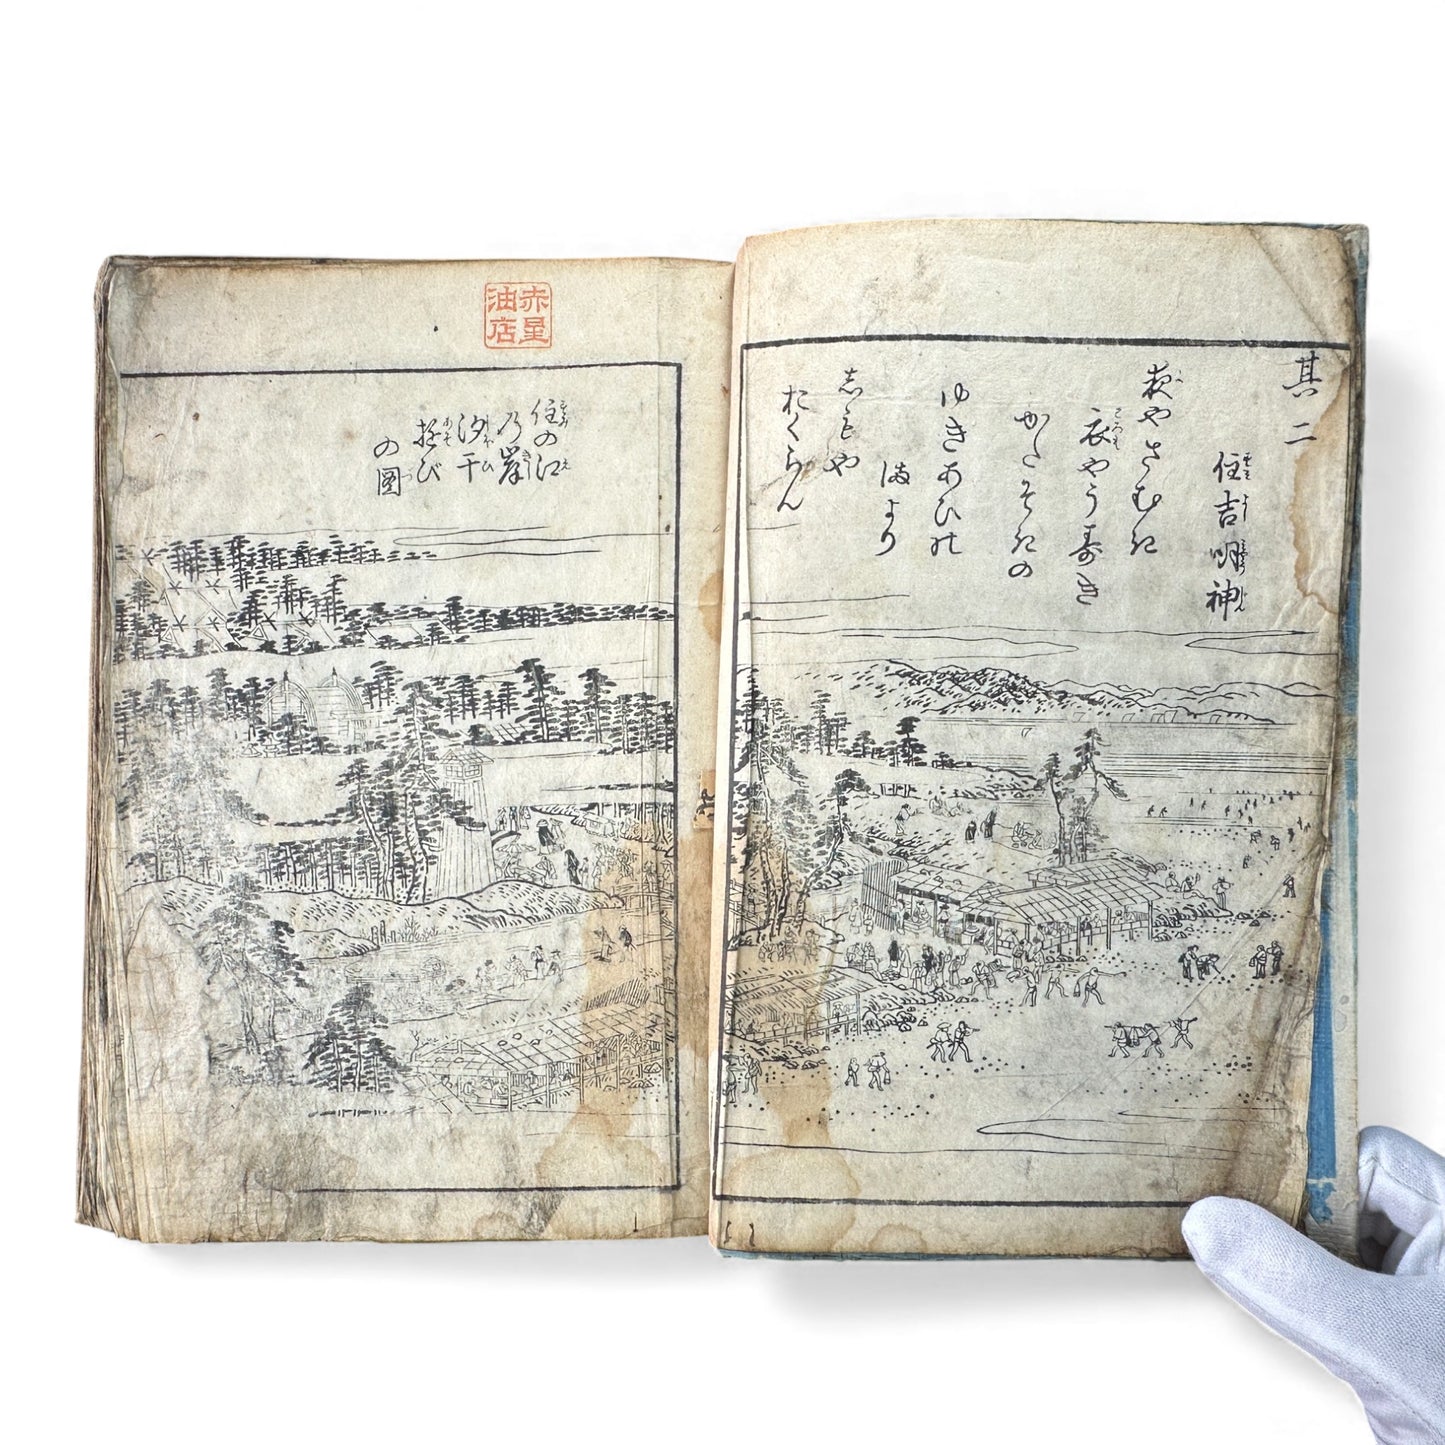 其二
住吉明神
夜やさむき
衣やうすき
かたそきの
ゆきあひの
まより
志もや
おくらん
赤星
油店
住の江
乃岸
汐干
遊び
の圖